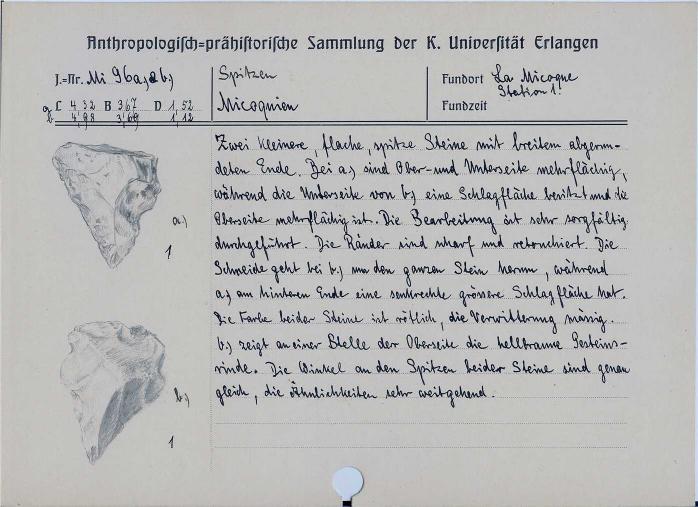 Anthropologisch=prähistorische Sammlung der K. Universität Erlangen
J.=Nr. Mi 96a, b)
Spitzen
Micoquien
Fundort La Micoque
Station 1.
Fundzeit
a L 4,32 B 3,67 D 1,52
b 4,98 3,69 1,12
Zwei kleinere, flache, spitze Steine mit breitem abgerun-
deten Ende. Bei a) sind Ober- und Unterseite mehrflächig,
während die Unterseite von b) eine Schlagfläche besitzt und die
Oberseite mehrflächig ist. Die Bearbeitung ist sehr sorgfältig
durchgeführt. Die Ränder sind scharf und retouchiert. Die
Schneide geht bei b) um den ganzen Stein herum, während
a) am hinteren Ende eine senkrechte grössere Schlagfläche hat.
Die Farbe beider Steine ist rötlich, die Verwitterung mässig.
b) zeigt an einer Stelle der Oberseite die hellbraune Gesteins-
rinde. Die Winkel an den Spitzen beider Steine sind genau
gleich, die Ähnlichkeiten sehr weitgehend.
a)
1
b)
1